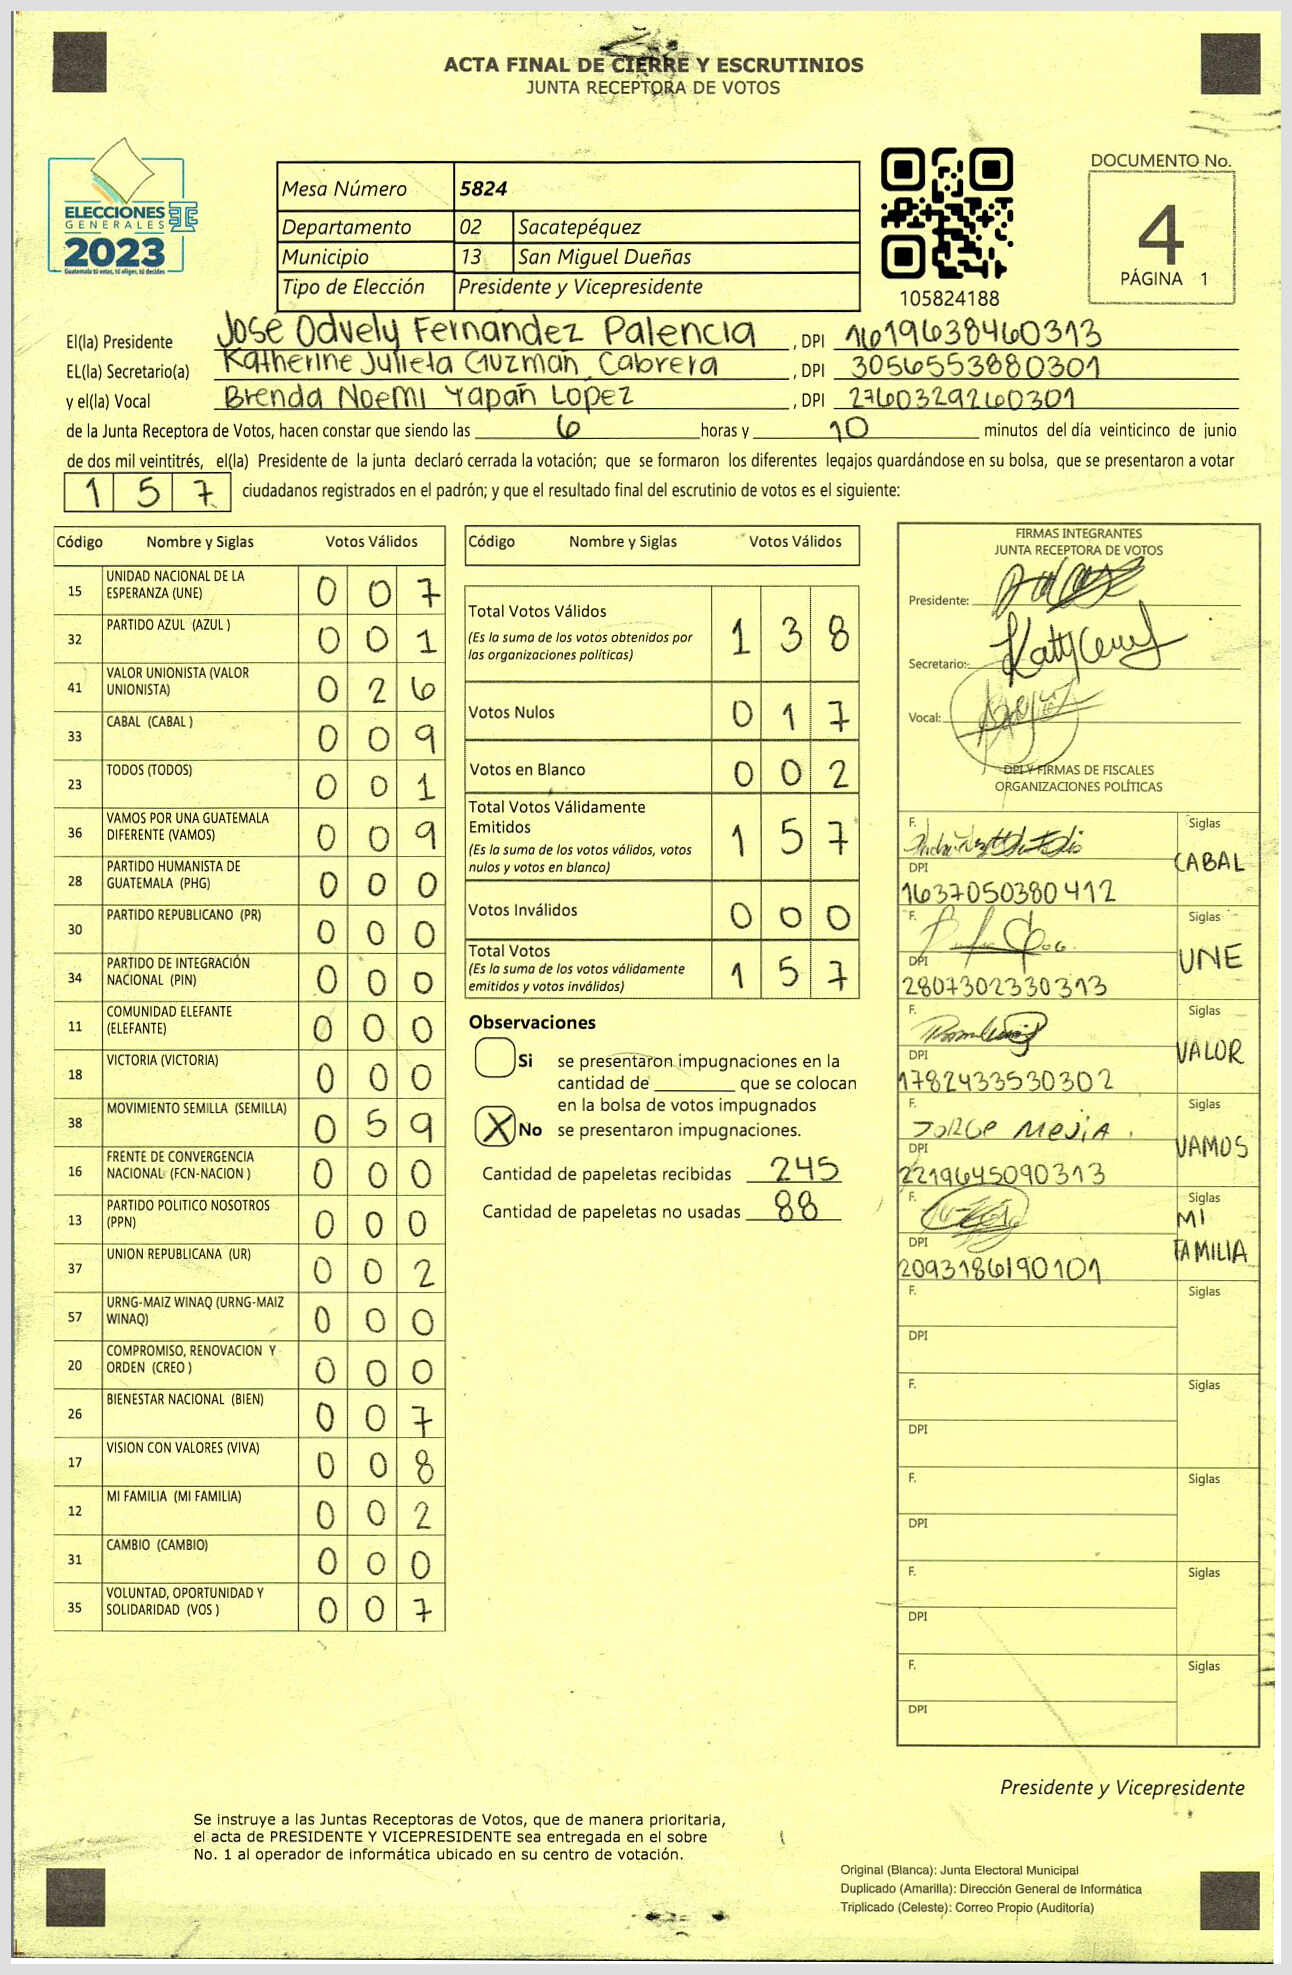 ACTA FINAL DE CIERRE Y ESCRUTINIOS
JUNTA RECEPTORA DE VOTOS
ELECCIONES
GENERALES
2023
Guatemala tú votas, tú eliges, tú decides
Mesa Número 5824
Departamento 02 Sacatepéquez
Municipio 13 San Miguel Dueñas
Tipo de Elección Presidente y Vicepresidente
105824188
DOCUMENTO No.
4
PÁGINA 1
El(la) Presidente Jose Odvely Fernández Palencia, DPI 1619638460313
EL(la) Secretario(a) Katherine Julieta Guzmán Cabrera, DPI 3056553880301
y el(la) Vocal Brenda Noemi Yapán López, DPI 2760329260301
de la Junta Receptora de Votos, hacen constar que siendo las 6 horas y 10 minutos del día veinticinco de junio
de dos mil veintitrés, el(la) Presidente de la junta declaró cerrada la votación; que se formaron los diferentes legajos guardándose en su bolsa, que se presentaron a votar
157 ciudadanos registrados en el padrón; y que el resultado final del escrutinio de votos es el siguiente:
Código Nombre y Siglas Votos Válidos
15 UNIDAD NACIONAL DE LA ESPERANZA (UNE) 0 0 7
32 PARTIDO AZUL (AZUL ) 0 0 1
41 VALOR UNIONISTA (VALOR UNIONISTA) 0 2 6
33 CABAL (CABAL ) 0 0 9
23 TODOS (TODOS) 0 0 1
36 VAMOS POR UNA GUATEMALA DIFERENTE (VAMOS) 0 0 9
28 PARTIDO HUMANISTA DE GUATEMALA (PHG) 0 0 0
30 PARTIDO REPUBLICANO (PR) 0 0 0
34 PARTIDO DE INTEGRACIÓN NACIONAL (PIN) 0 0 0
11 COMUNIDAD ELEFANTE (ELEFANTE) 0 0 0
18 VICTORIA (VICTORIA) 0 0 0
38 MOVIMIENTO SEMILLA (SEMILLA) 0 5 9
16 FRENTE DE CONVERGENCIA NACIONAL (FCN-NACION ) 0 0 0
13 PARTIDO POLITICO NOSOTROS (PPN) 0 0 0
37 UNION REPUBLICANA (UR) 0 0 2
57 URNG-MAIZ WINAQ (URNG-MAIZ WINAQ) 0 0 0
20 COMPROMISO, RENOVACION Y ORDEN (CREO ) 0 0 0
26 BIENESTAR NACIONAL (BIEN) 0 0 7
17 VISION CON VALORES (VIVA) 0 0 8
12 MI FAMILIA (MI FAMILIA) 0 0 2
31 CAMBIO (CAMBIO) 0 0 0
35 VOLUNTAD, OPORTUNIDAD Y SOLIDARIDAD (VOS ) 0 0 7
Código Nombre y Siglas Votos Válidos
Total Votos Válidos 1 3 8
(Es la suma de los votos obtenidos por
las organizaciones políticas)
Votos Nulos 0 1 7
Votos en Blanco 0 0 2
Total Votos Válidamente
Emitidos 1 5 7
(Es la suma de los votos válidos, votos
nulos y votos en blanco)
Votos Inválidos 0 0 0
Total Votos 1 5 7
(Es la suma de los votos válidamente
emitidos y votos inválidos)
Observaciones
Si se presentaron impugnaciones en la
cantidad de ________ que se colocan
en la bolsa de votos impugnados
X No se presentaron impugnaciones.
Cantidad de papeletas recibidas 245
Cantidad de papeletas no usadas 88
FIRMAS INTEGRANTES
JUNTA RECEPTORA DE VOTOS
Presidente:
Secretario:
Vocal:
DPI Y FIRMAS DE FISCALES
ORGANIZACIONES POLÍTICAS
F. Siglas CABAL
DPI 1637050380412
F. Siglas UNE
DPI 2807302330313
F. Siglas VALOR
DPI 1782433530302
F. JORGE MEJIA. Siglas VAMOS
DPI 2219645090313
F. Siglas MI FAMILIA
DPI 2093186190101
F. Siglas
DPI
F. Siglas
DPI
F. Siglas
DPI
F. Siglas
DPI
F. Siglas
DPI
Presidente y Vicepresidente
Se instruye a las Juntas Receptoras de Votos, que de manera prioritaria,
el acta de PRESIDENTE Y VICEPRESIDENTE sea entregada en el sobre
No. 1 al operador de informática ubicado en su centro de votación.
Original (Blanca): Junta Electoral Municipal
Duplicado (Amarilla): Dirección General de Informática
Triplicado (Celeste): Correo Propio (Auditoría)